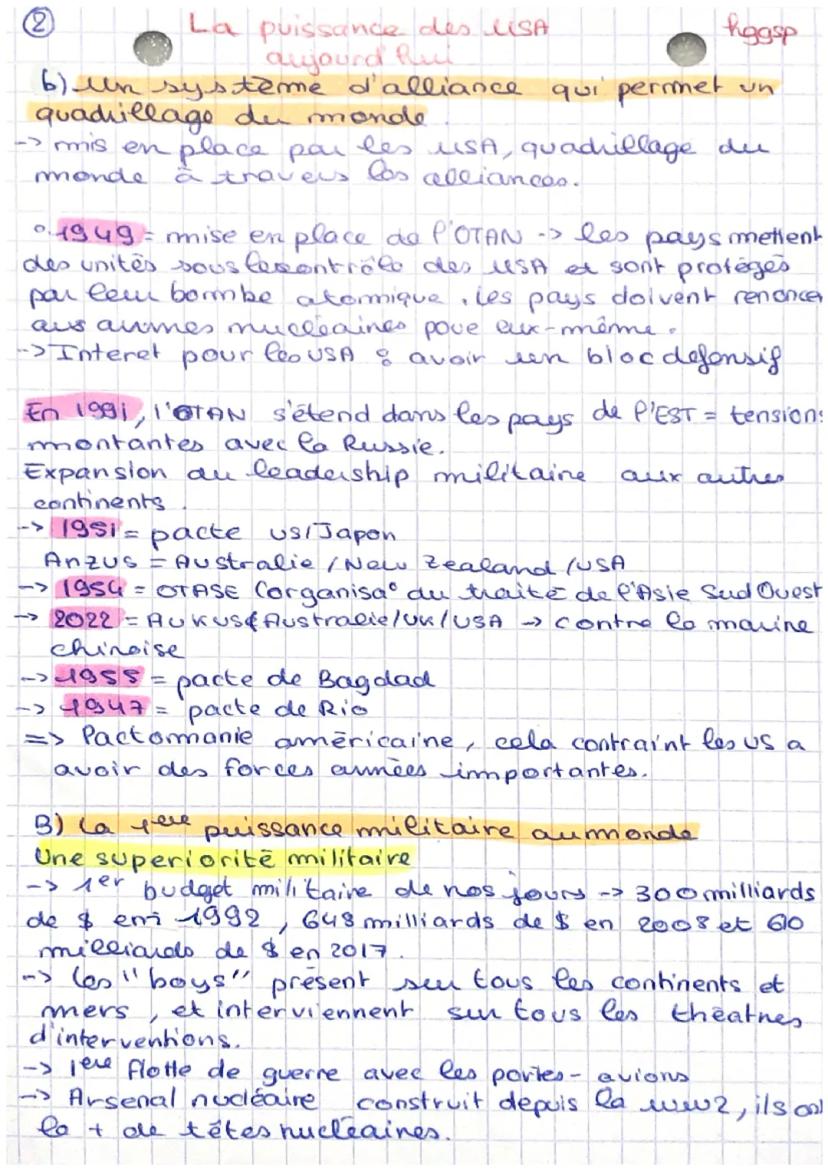 ② La puissance des USA hggsp
aujourd'hui
b) Un système d'alliance qui permet un
quadrillage du monde
-> mis en place par les USA, quadrillage du
monde à travers les alliances.
° 1949 = mise en place de l'OTAN -> les pays mettent
des unités sous le contrôle des USA et sont protégés
par leur bombe atomique. les pays doivent renoncer
aus armes nucléaires pour eux-même.
-> Interet pour les USA : avoir un bloc defensif
En 1991, l'OTAN s'étend dans les pays de l'EST = tensions
montantes avec la Russie.
Expansion du leadership militaire aux autres
continents.
-> 1951 = pacte US/Japon
Anzus = Australie / New Zealand / USA
-> 1954 = OTASE (organisa° du traité de l'Asie Sud Ouest
-> 2022 = AUKUS Australie/UK/USA -> contre la marine
chinoise
-> 1955 = pacte de Bagdad
-> 1947 = pacte de Rio
=> Pactomanie américaine, cela contraint les US a
avoir des forces armées importantes.
B) La 1ère puissance militaire au monde
Une superiorité militaire
-> 1er budget militaire de nos jours -> 300 milliards
de $ en 1992, 648 milliards de $ en 2008 et 610
milliards de $ en 2017.
-> les "boys" présent sur tous les continents et
mers, et interviennent sur tous les théatres
d'interventions.
-> 1ère flotte de guerre avec les portes-avions
-> Arsenal nucléaire construit depuis la ww2, ils ont
le + de têtes nucléaires.